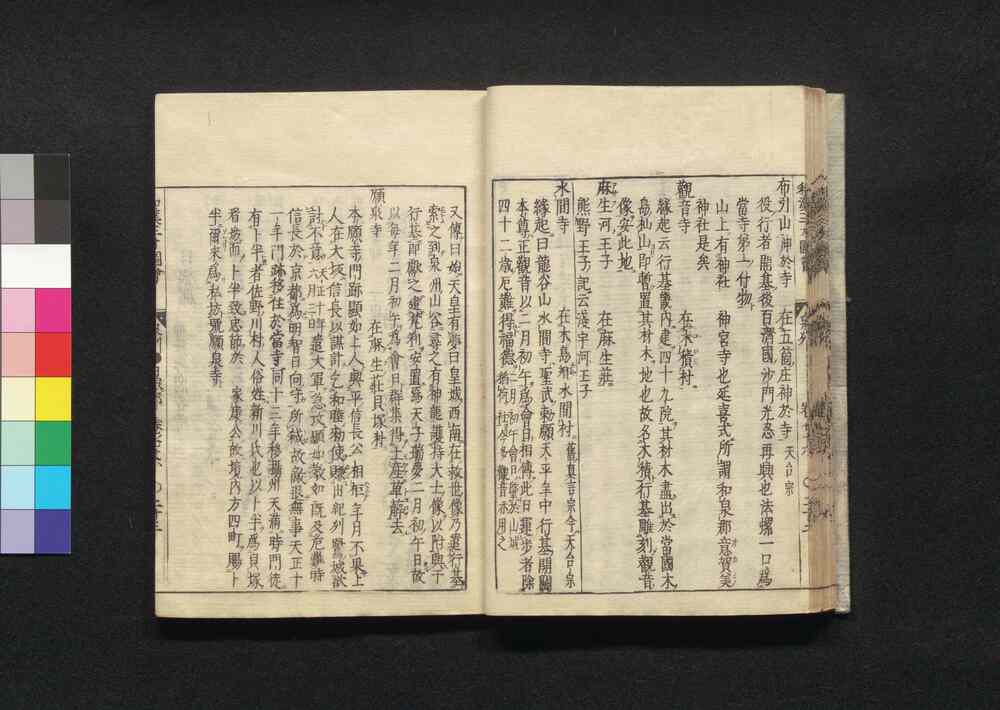 布引山神於寺 在五箇庄神於寺 天台宗
役行者龍基後百濟國沙門光忍再興也法螺一口爲
當寺第一什物
山上有神社 神宮寺也延喜式所謂和泉郡意賀美
神社是矣
觀音寺 在木積村
縁起云行基畿內建四十九院其材木盡出於當國木
島杣山即暫置其材木地也故名木積行基雕刻觀音
像安此地
麻生河王子 在麻生莊
熊野王子記云淺宇河王子
水間寺 在木島鄉水間村 舊真言宗今天台宗
縁起曰龍谷山水間寺聖武勅願天平年中行基開闢
本尊正觀音以二月初午爲會日相傳此日運步者除
四十二歳厄難得福德
又傳曰始天皇有夢曰皇城西南在救世像乃遣行基
索之到泉州山谷尋之有神龍護持大士像以附與于
行基即獻之建死利安置爲天子瑞夢二月初午日故
以每年二月初午爲會日群集得土産草蔀去
願泉寺 在麻生莊貝塚村
本願寺門跡顯如上人與平信長公相拒年月不果上
人在大坂信長以謀計乞和睦勅使賺出親列鷺城欲
討不意六月三日遣大軍急攻顯如教如既及危難時
信長於京都爲明智日向守所弑故敵退無事天正十
一年門跡移住於當寺同十三年移攝州天滿時門徒
有卜半者佐野川村人俗姓新川氏也以卜半爲貝塚
看坊而卜半致忠節於 家康公故境內方四町賜卜
半爾來爲私坊號願泉寺